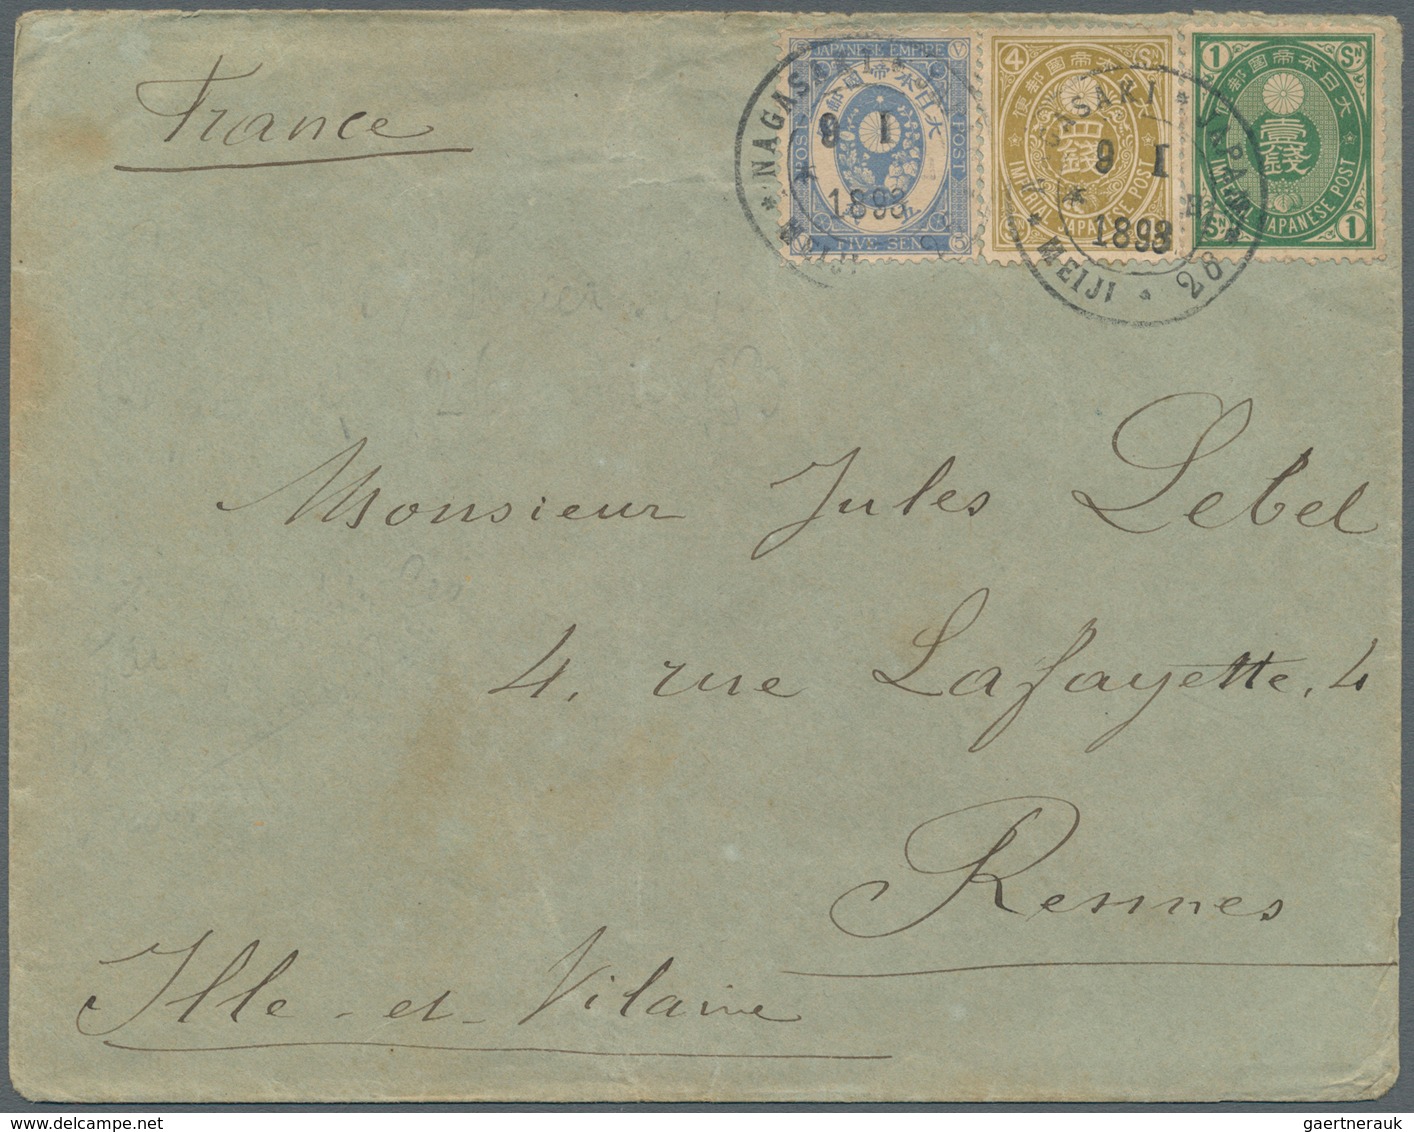 France
JAPANESE EMPIRE
大日本帝國郵
POST
FIVE SEN
5
V
4 Sn
大日本帝國郵便
四錢
IMPERIAL JAPANESE POST
1 Sn
大日本帝國郵便
壹錢
IMPERIAL JAPANESE POST
Sn 1
NAGASAKI
9 I
1893
MEIJI
NAGASAKI * JAPAN
9 I
1893
* MEIJI * 26
Monsieur Jules Lebel
4, rue Lafayette, 4
Rennes
Ille-et-Vilaine
gaertnerauk